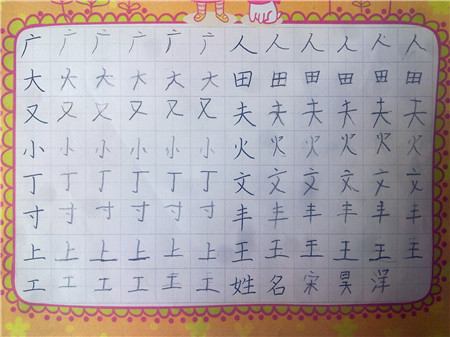 广广广广广广人人人人人人
大大大大大大田田田田田田
又又又又又又夫夫夫夫夫夫
小小小小小小火火火火火火
丁丁丁丁丁丁文文文文文文
寸寸寸寸寸寸丰丰丰丰丰丰
上上上上上上王王王王王王
工工工工工工姓名宋昊洋